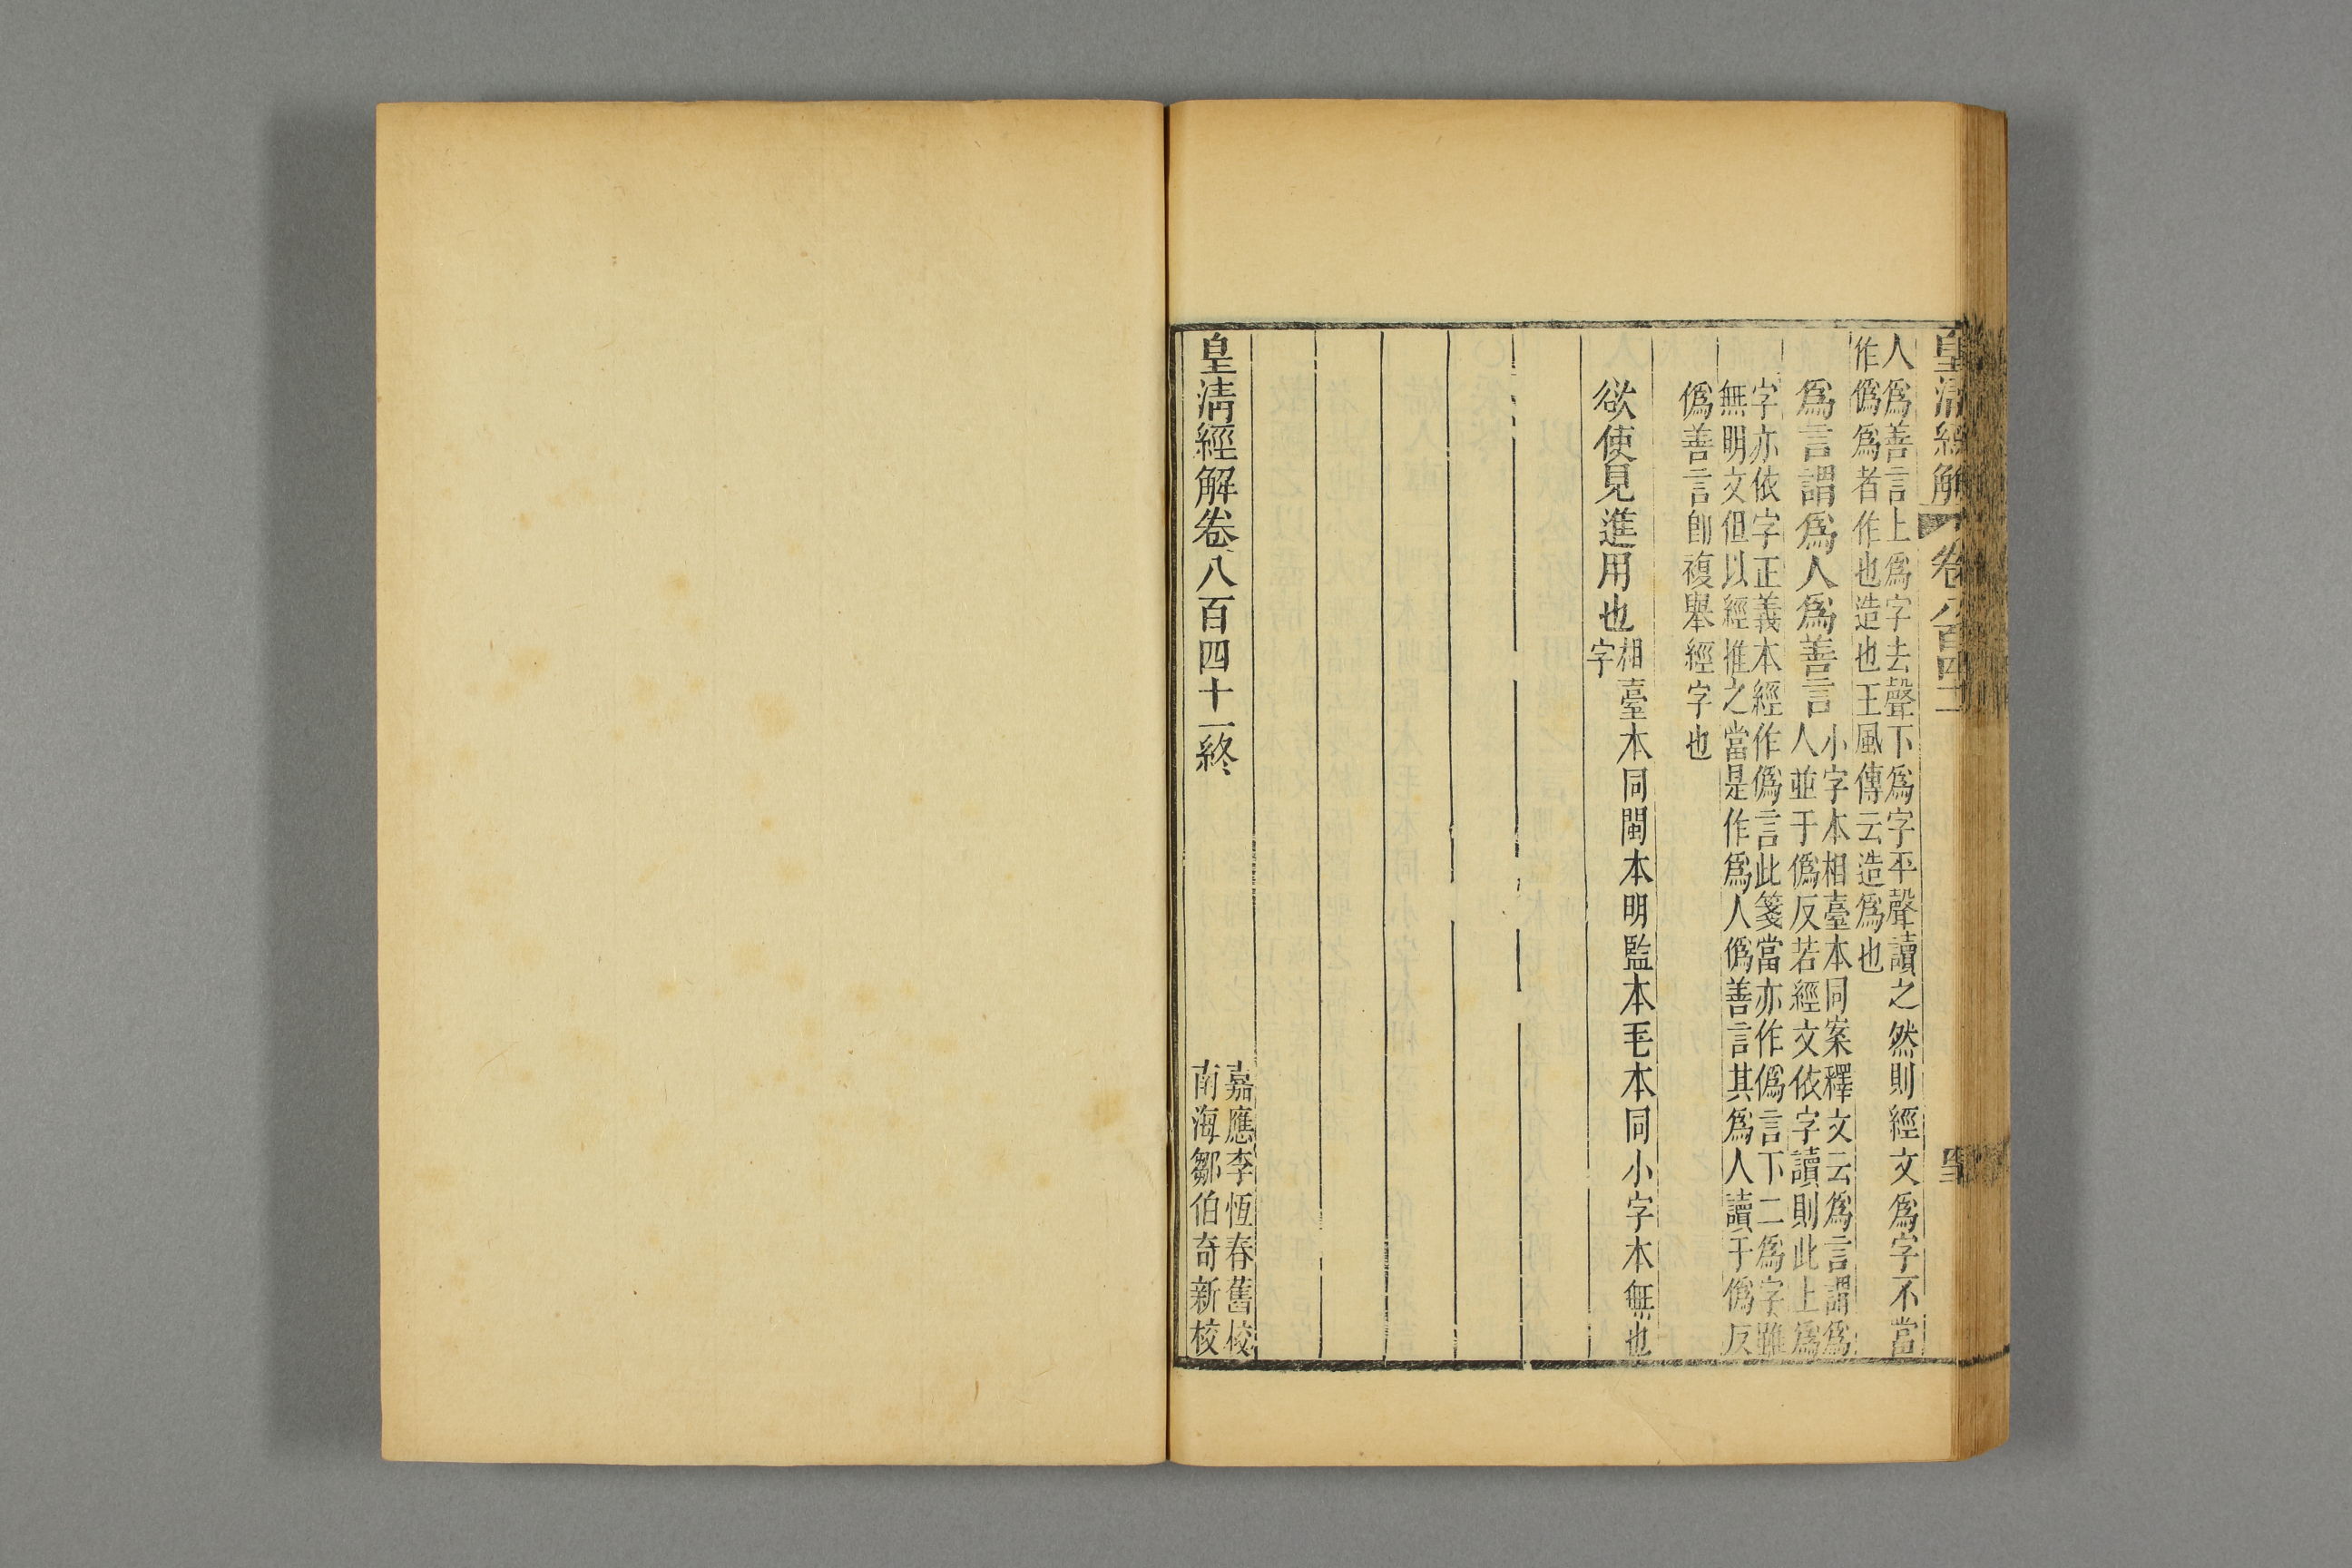 皇清經解 卷八百四十一
人爲善言上爲字去聲下爲字平聲讀之然則經文爲字不當
作僞爲者作也造也王風傳云造爲也
爲言謂爲人爲善言
小字本相臺本同案釋文云爲言謂爲
人並于僞反若經文依字讀則此上爲
字亦依字正義本經作僞言此箋當亦作僞言下二爲字雖
無明文但以經推之當是作爲人僞善言其爲人讀于僞反
僞善言卽複舉經字也
欲使見進用也
相臺本同閩本明監本毛本同小字本無也
字
皇清經解卷八百四十一終
嘉應李恆春舊校
南海鄒伯奇新校